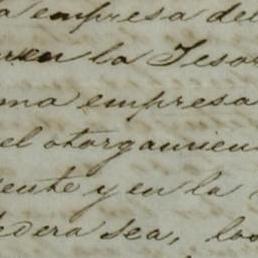 a empresa del
en la Tesor
ma empresa
el otorgamien
iente y en la
edera sea, los